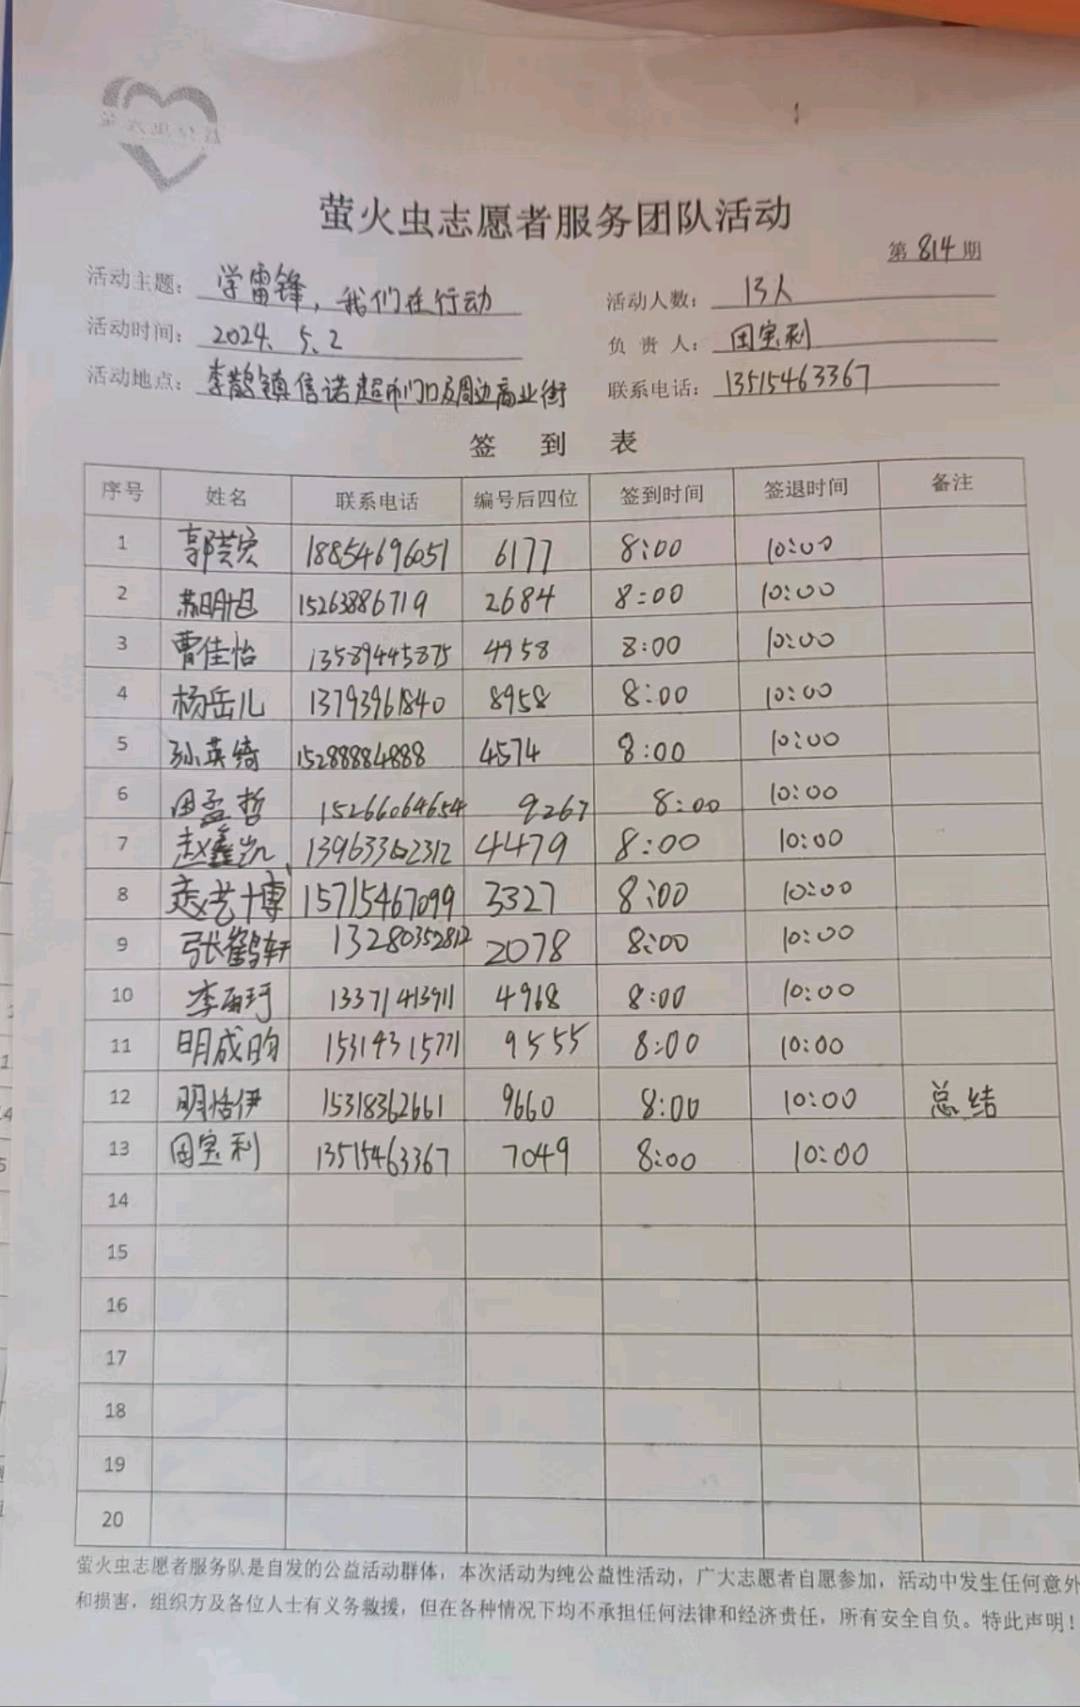 萤火虫志愿者服务团队活动
第 814 期
活动主题: 学雷锋, 我们在行动 活动人数: 13人
活动时间: 2024. 5. 2 负 责 人: 田宝利
活动地点: 李鹊镇信诺超市门口及周边商业街 联系电话: 13515463367
签 到 表
序号 姓名 联系电话 编号后四位 签到时间 签退时间 备注
1 18854696051 6177 8:00 10:00
2 苏明旭 15263886719 2684 8:00 10:00
3 曹佳怡 13589445875 4958 8:00 10:00
4 杨岳儿 13793961840 8958 8:00 10:00
5 孙英绮 15288884888 4574 8:00 10:00
6 田孟哲 15266064654 9267 8:00 10:00
7 赵鑫凯 4479 8:00 10:00
8 15715467099 3327 8:00 10:00
9 张鹤轩 13280352812 2078 8:00 10:00
10 13371413911 4968 8:00 10:00
11 明成昀 15314315771 9555 8:00 10:00
12 明恬伊 15318362661 9660 8:00 10:00 总结
13 田宝利 13515463367 7049 8:00 10:00
14
15
16
17
18
19
20
萤火虫志愿者服务队是自发的公益活动群体，本次活动为纯公益性活动，广大志愿者自愿参加，活动中发生任何意外
和损害，组织方及各位人士有义务救援，但在各种情况下均不承担任何法律和经济责任，所有安全自负。特此声明！